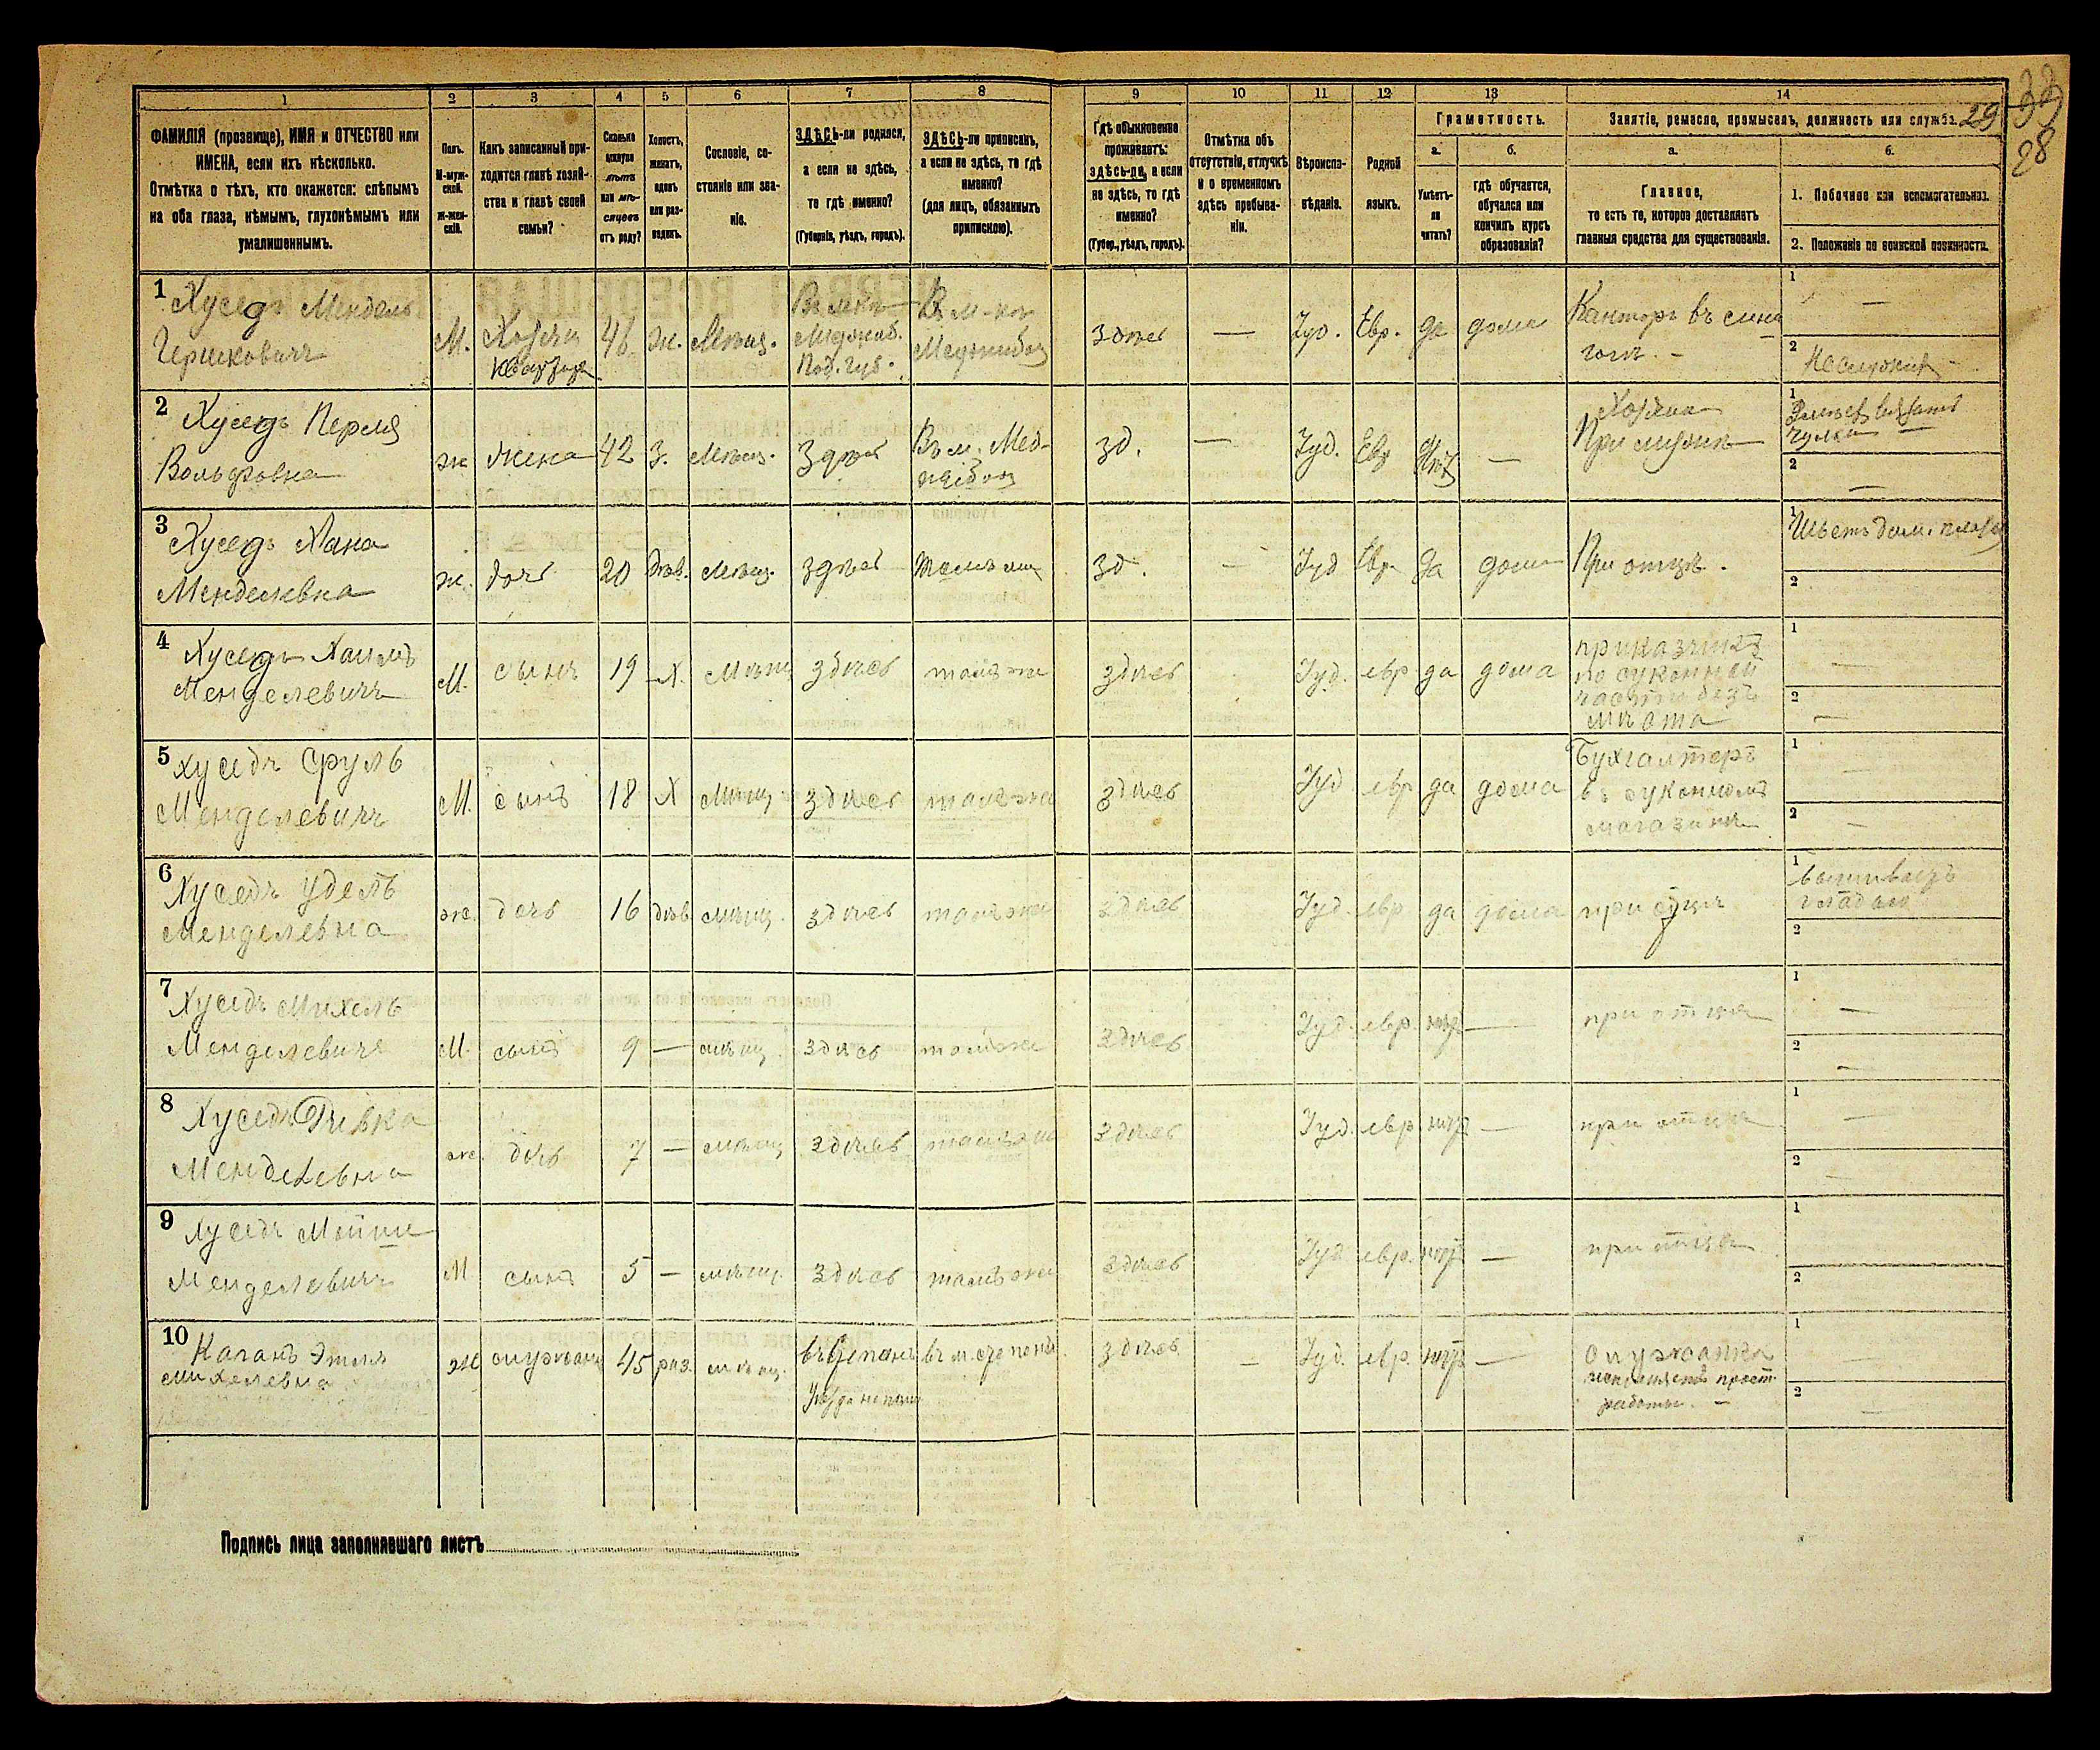 1 2 3 4 5 6 7 8 9 10 11 12 13 14
29
28
ФАМИЛІЯ (прозвище), ИМЯ и ОТЧЕСТВО или
ИМЕНА, если ихъ нѣсколько.
Отмѣтка о тѣхъ, кто окажется: слѣпымъ
на оба глаза, нѣмымъ, глухонѣмымъ или
умалишеннымъ.
Полъ.
М-муж-
ской.
Ж-жен-
скій.
Какъ записанный при-
ходится главѣ хозяй-
ства и главѣ своей
семьи?
Сколько
минуло
лѣтъ
или мѣ-
сяцевъ
отъ роду?
Холостъ,
женатъ,
вдовъ
или раз-
веденъ.
Сословіе, со-
стояніе или зва-
ніе.
ЗДѢСЬ-ли родился,
а если не здѣсь,
то гдѣ именно?
(Губернія, уѣздъ, городъ).
ЗДѢСЬ-ли приписанъ,
а если не здѣсь, то гдѣ
именно?
(для лицъ, обязанныхъ
припискою).
Гдѣ обыкновенно
проживаетъ:
здѣсь-ли, а если
не здѣсь, то гдѣ
именно?
(Губер., уѣздъ, городъ).
Отмѣтка объ
отсутствіи, отлучкѣ
и о временномъ
здѣсь пребыва-
ніи.
Вѣроиспо-
вѣданіе.
Родной
языкъ.
Грамотность.
а.
Умѣетъ-
ли
читать?
б.
гдѣ обучается,
обучался или
кончилъ курсъ
образованія?
Занятіе, ремесло, промыселъ, должность или служба.
а.
Главное,
то есть то, которое доставляетъ
главныя средства для существованія.
б.
1. Побочное или вспомогательное.
2. Положеніе по воинской повинности.
1 Хуседъ Мендель
Гершковичъ
М. Хозяин 46 ж. Мѣщ.
Меджиб.
Под. губ.
Меджибож
здѣсь — Іуд. Евр. да дома
Канторъ въ сина
гогѣ. —
1 —
2
2 Хуседъ Перля
Вольфовна
ж жена 42 З. Мѣщ. Здѣсь
Въ м. Мед-
жибож
зд. — Іуд. Евр Нѣт —
Хозяйка
При мужѣ
1
чулки
2 —
3 Хуседъ Хана
Менделевна
ж. дочь 20 дѣв. Мѣщ. здѣсь тамъ же зд. — Іуд Евр да дома При отцѣ.
1 Шьетъ дам. платья
2
4 Хуседъ Хаимъ
Менделевичъ
М. сынъ 19 Х. Мѣщ здѣсь тамъ же здѣсь Іуд. евр да дома
приказчикъ
по суконной
части безъ
мѣста
1 —
2 —
5 Хуседъ Сруль
Менделевичъ
М. сынъ 18 Х Мѣщ здѣсь тамъ же здѣсь Іуд евр да дома
Бухгалтеръ
въ суконномъ
магазинѣ
1 —
2 —
6 Хуседъ Удель
Менделевна
ж. дочь 16 дѣв. мѣщ. здѣсь тамъ же здѣсь Іуд. евр да дома при отцѣ
1 вышиваетъ
гладью
2
7 Хуседъ Михель
Менделевичъ
М. сынъ 9 — мѣщ. здѣсь тамъ же здѣсь Іуд. евр. нѣт — при отцѣ
1 —
2 —
8 Хуседъ Ривка
Менделевна
ж. дочь 7 — мѣщ здѣсь тамъ же здѣсь Іуд. евр нѣт — при отцѣ
1 —
2 —
9 Хуседъ Мойше
Менделевичъ
М сынъ 5 — мѣщ. здѣсь тамъ же здѣсь Іуд евр. нѣт — при отцѣ
1
2
10 Каганъ Этля
Михелевна
ж служанка 45 раз. мѣщ. здѣсь — Іуд. евр. нѣт —
Служанка
исполняетъ прост.
работы. —
1 —
2 —
Подпись лица заполнявшаго листъ